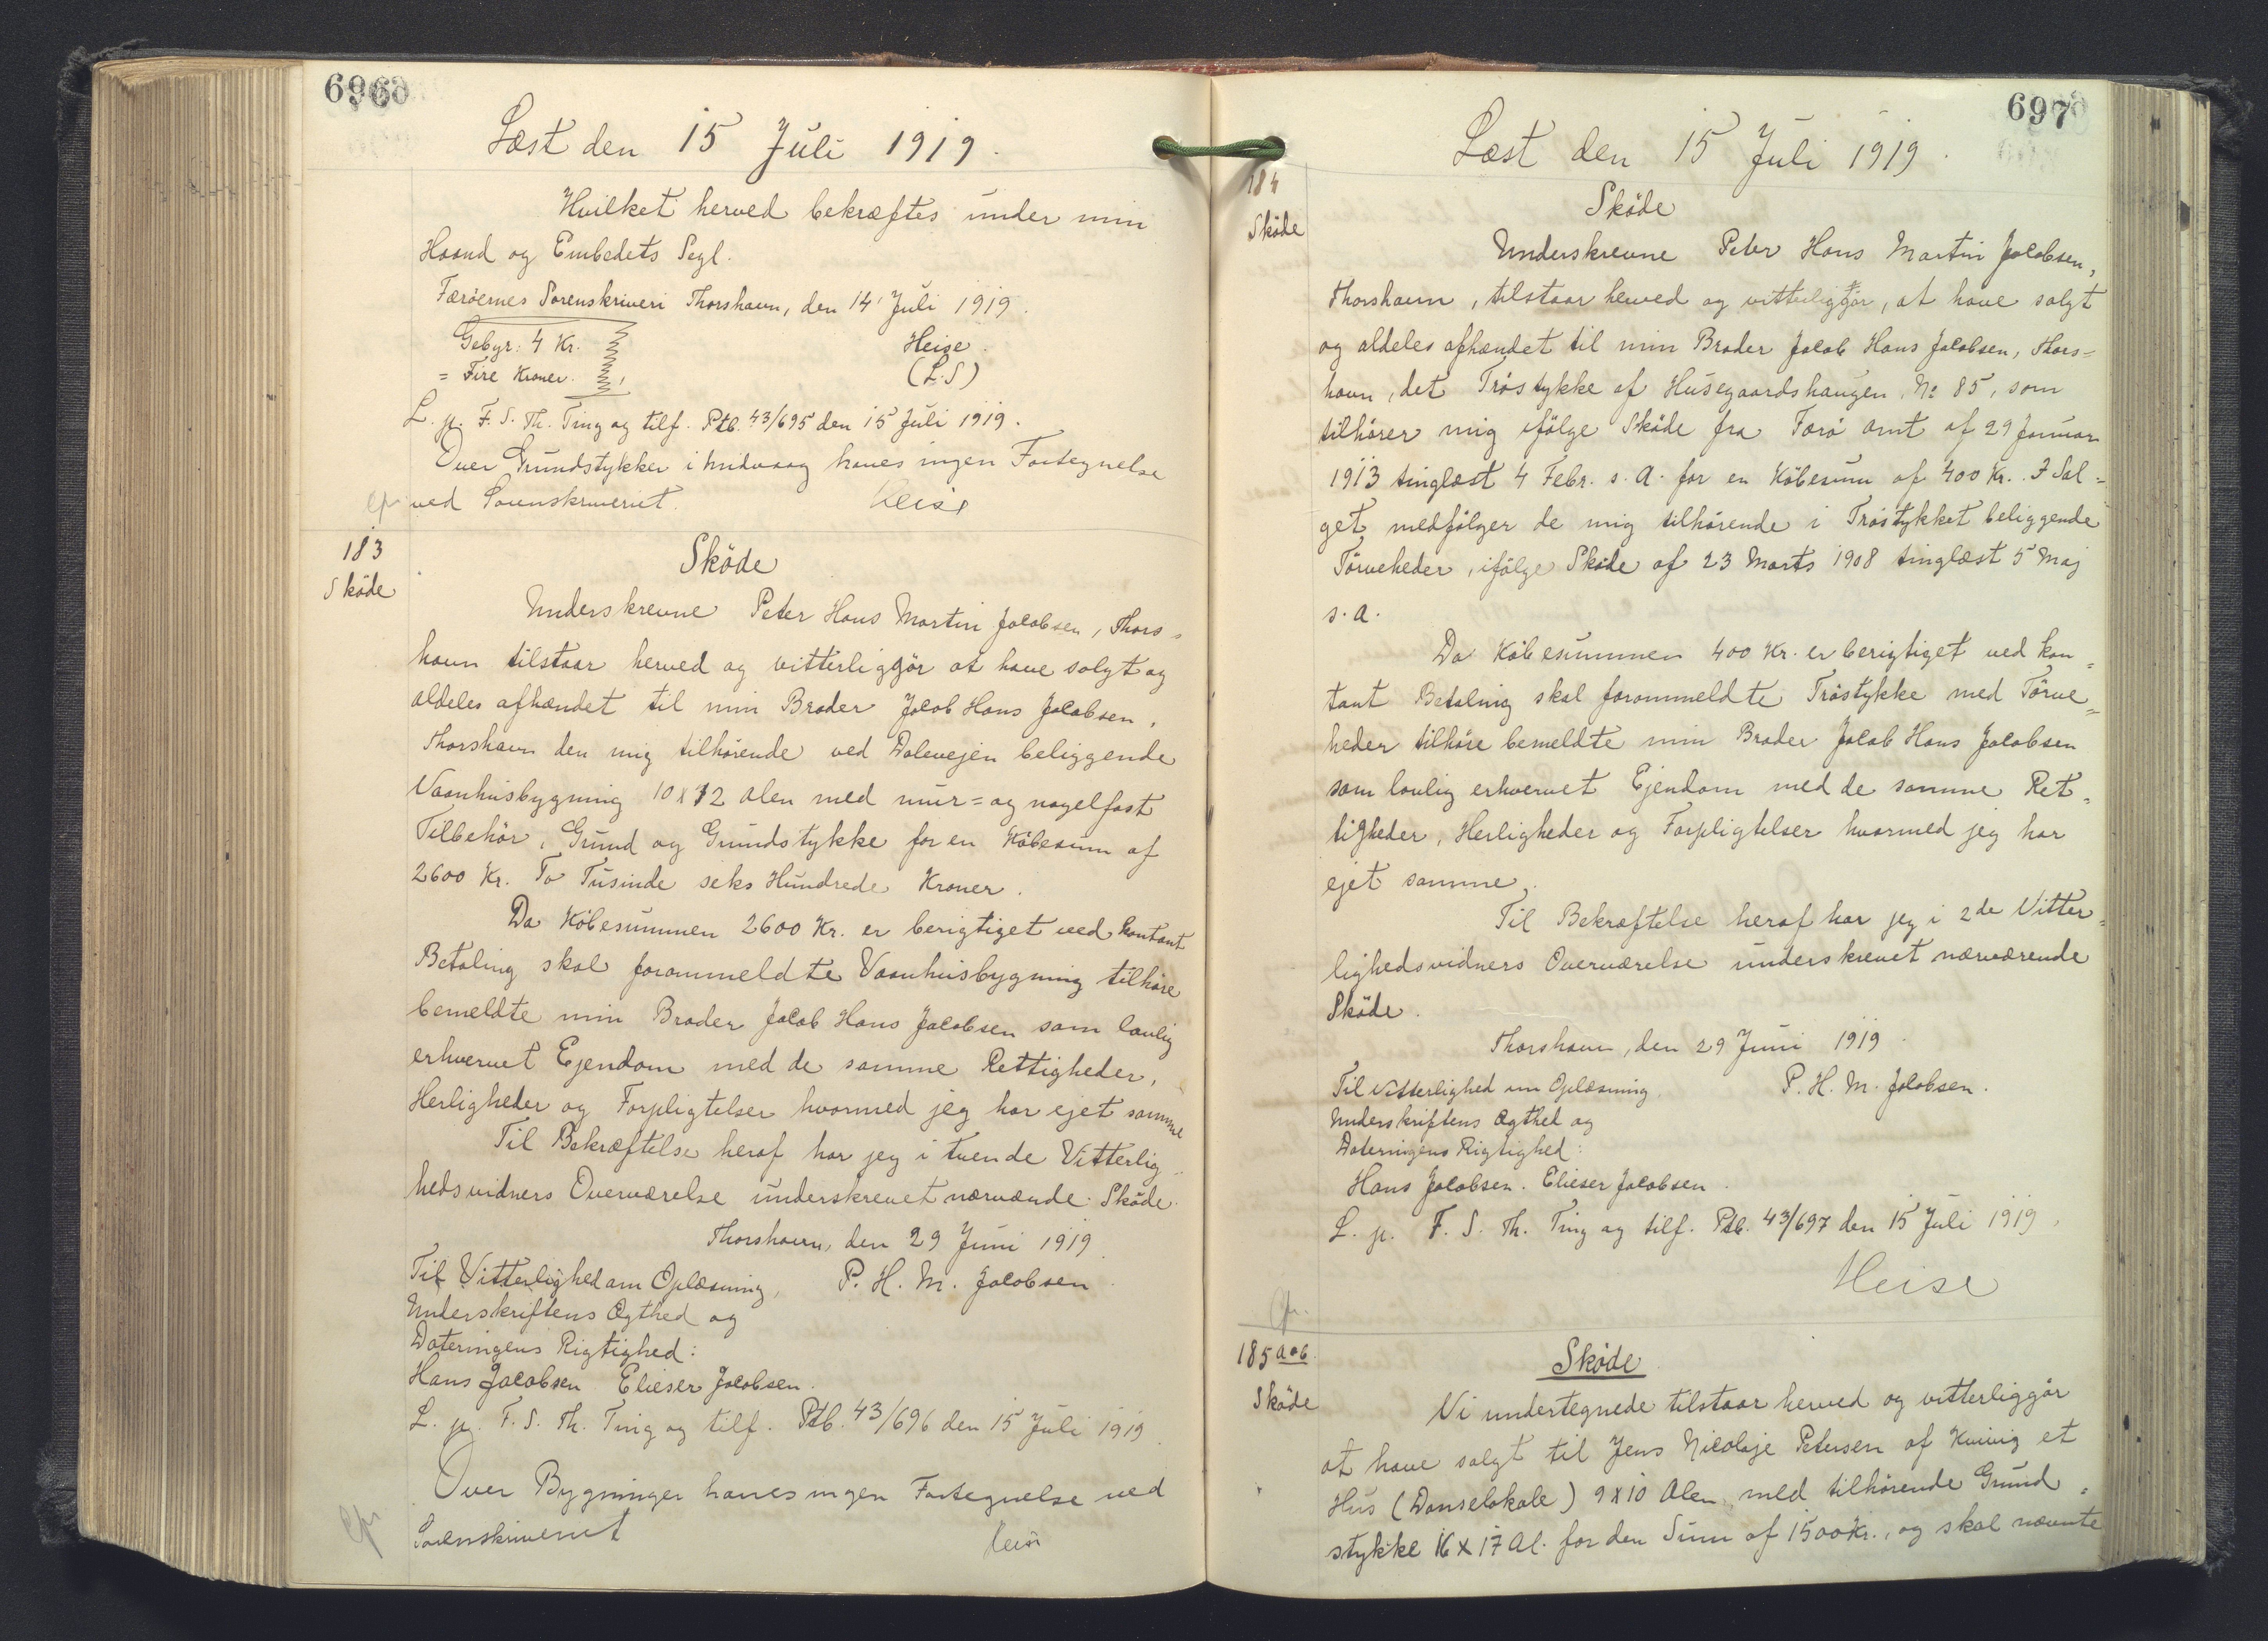 696
Læst den 15 Juli 1919.
Hvilket herved bekræftes under min
Haand og Embedets Segl.
Færöernes Sorenskriveri Thorshavn, den 14' Juli 1919.
Gebyr: 4 Kr. Heise.
= Fire Kroner. (L.S)
L. p. F. S. Th. Ting og tilf. Ptb. 43/695 den 15 Juli 1919.
Over Grundstykker i Midvaag haves ingen Fortegnelse
ved Sorenskriveriet. Heise
183
Sköde
Sköde
Underskrevne Peter Hans Martin Jacobsen, Thors=
havn tilstaar herved og vitterliggör at have solgt og
aldeles afhændet til min Broder Jacob Hans Jacobsen,
Thorshavn den mig tilhörende ved Dalevejen beliggende
Vaanhusbygning 10 x 12 Alen med mur= og nagelfast
Tilbehör, Grund og Grundstykke for en Köbesum af
2600 Kr. To Tusinde seks Hundrede Kroner.
Da Köbesummen 2600 Kr. er berigtiget ved kontant
Betaling skal forommeldte Vaanhusbygning tilhöre
bemeldte min Broder Jacob Hans Jacobsen som lovlig
erhvervet Ejendom med de samme Rettigheder,
Herligheder og Forpligtelser hvormed jeg har ejet samme
Til Bekræftelse heraf har jeg i tvende Vitterlig=
hedsvidners Overværelse underskrevet nærværende Sköde.
Thorshavn, den 29 Juni 1919.
Til Vitterlighed om Oplæsning, P. H. M. Jacobsen
Underskriftens Ægthed og
Dateringens Rigtighed:
Hans Jacobsen Elieser Jacobsen.
L. p. F. S. Th. Ting og tilf. Ptb. 43/696 den 15 Juli 1919
Over Bygninger haves ingen Fortegnelse ved
Sorenskriveriet Heise
697
Læst den 15 Juli 1919.
184
Sköde
Sköde
Underskrevne Peter Hans Martin Jacobsen,
Thorshavn, tilstaar herved og vitterliggör, at have solgt
og aldeles afhændet til min Broder Jacob Hans Jacobsen, Thors=
havn, det Tröstykke af Husegaardshaugen, No 85, som
tilhörer mig ifölge Sköde fra Færö Amt af 29 Januar
1913 tinglæst 4 Febr. s. A. for en Köbesum af 400 Kr. I Sal=
get medfölger de mig tilhörende i Tröstykket beliggende
Törveheder, ifölge Sköde af 23 Marts 1908 tinglæst 5 Maj
s. A.
Da Köbesummen 400 Kr. er berigtiget ved kon=
tant Betaling skal forommeldte Tröstykke med Törve=
heder tilhöre bemeldte min Broder Jacob Hans Jacobsen
som lovlig erhvervet Ejendom med de samme Ret=
tigheder, Herligheder og Forpligtelser hvormed jeg har
ejet samme.
Til Bekræftelse heraf har jeg i 2de Vitter=
lighedsvidners Overværelse underskrevet nærværende
Sköde.
Thorshavn, den 29 Juni 1919.
Til Vitterlighed om Oplæsning P. H. M. Jacobsen.
Underskriftens Ægthed og
Dateringens Rigtighed:
Hans Jacobsen. Elieser Jacobsen.
L. p. F. S. Th. Ting og tilf. Ptb. 43/697 den 15 Juli 1919.
Heise
185 a o b.
Sköde
Sköde
Vi undertegnede tilstaar herved og vitterliggör
at have solgt til Jens Nicolaje Petersen af Kvivig et
Hus (Danselokale) 9 x 10 Alen, med tilhörende Grund=
stykke 16 x 17 Al. for den Sum af 1500 Kr., og skal nævnte